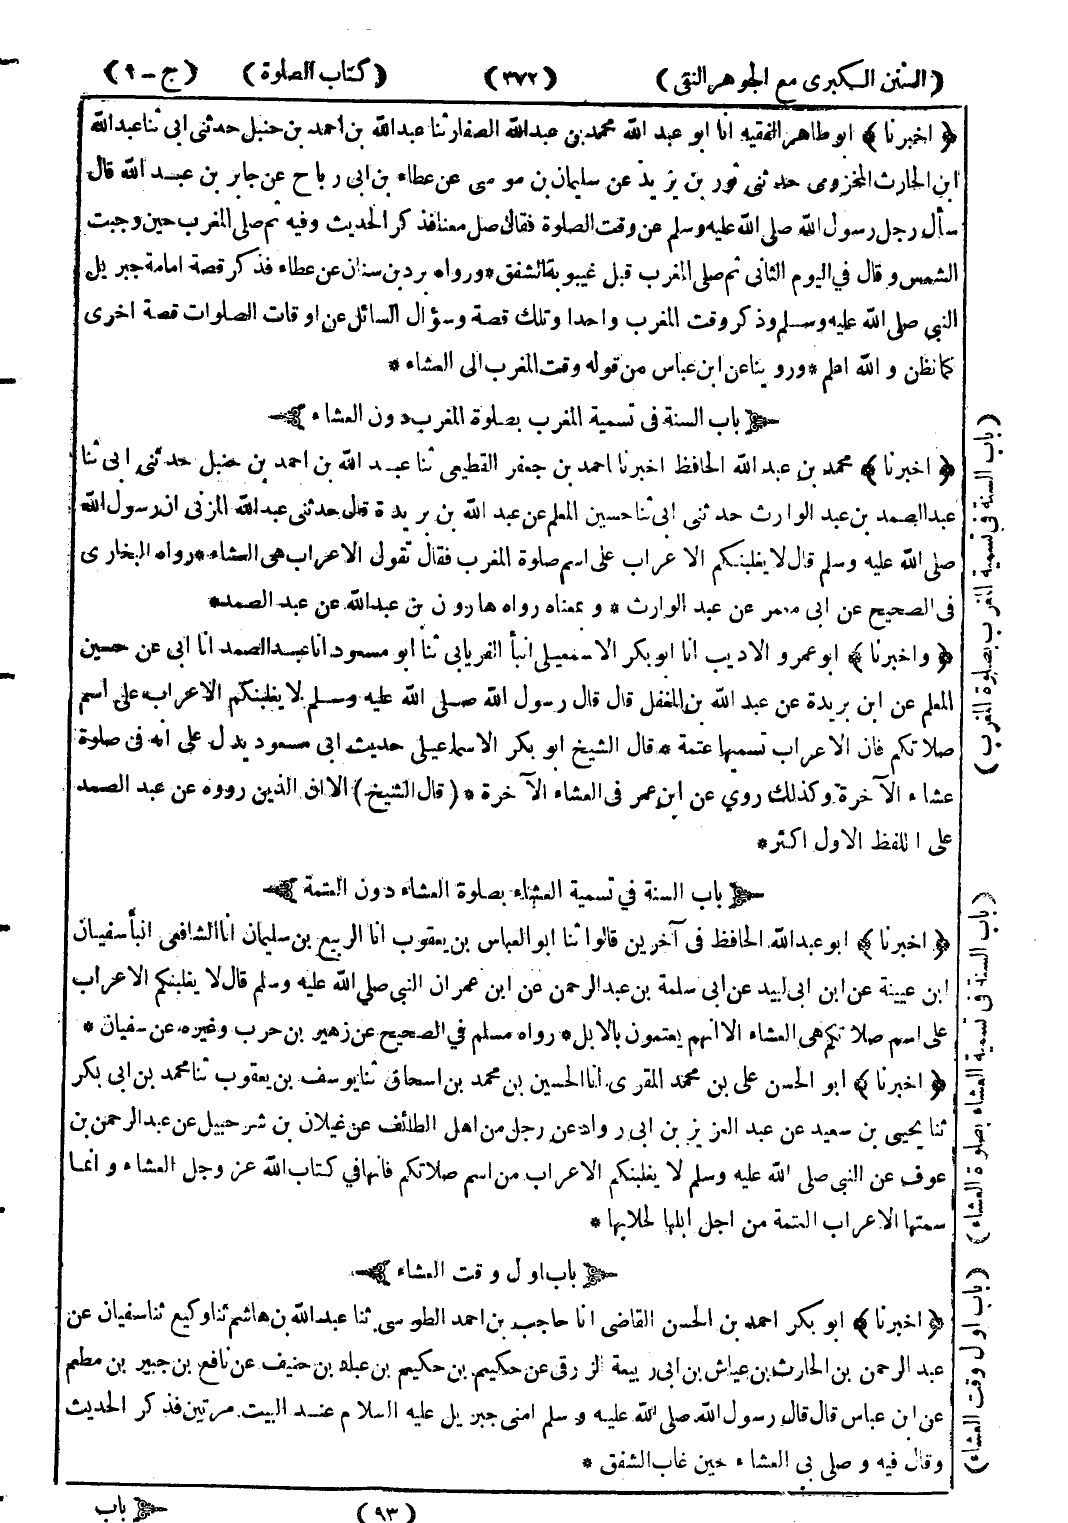 (السنن الكبرى مع الجوهر النقى) (٣٧٢) (كتاب الصلوة) (ج - ١)
﴿ اخبرنا ﴾ ابو طاهر الفقيه انا ابو عبد الله محمد بن عبد الله الصفار ثنا عبد الله بن احمد بن حنبل حدثنى ابى ثنا عبد الله
ابن الحارث المخزومى حدثنى ثور بن يزيد عن سليمان بن موسى عن عطاء بن ابى رباح عن جابر بن عبد الله قال
سأل رجل رسول الله صلى الله عليه وسلم عن وقت الصلوة فقال صل معنا فذكر الحديث وفيه ثم صلى المغرب حين وجبت
الشمس و قال في اليوم الثانى ثم صلى المغرب قبل غيبوبة الشفق * ورواه برد بن سنان عن عطاء فذكر قصة امامة جبريل
النبى صلى الله عليه وسلم وذكر وقت المغرب واحدا وتلك قصة وسؤال السائل عن اوقات الصلوات قصة اخرى
كما نظن و الله اعلم * وروينا عن ابن عباس من قوله وقت المغرب الى العشاء *
باب السنة فى تسمية المغرب بصلوة المغرب دون العشاء
﴿ اخبرنا ﴾ محمد بن عبد الله الحافظ اخبرنا احمد بن جعفر القطيعى ثنا عبد الله بن احمد بن حنبل حدثنى ابى ثنا
عبد الصمد بن عبد الوارث حدثنى ابى ثنا حسين المعلم عن عبد الله بن بريدة قال حدثنى عبد الله المزنى ان رسول الله
صلى الله عليه وسلم قال لا يغلبنكم الاعراب على اسم صلوة المغرب فقال تقول الاعراب هى العشاء * رواه البخارى
فى الصحيح عن ابى معمر عن عبد الوارث * و بمعناه رواه هارون بن عبد الله عن عبد الصمد *
﴿ واخبرنا ﴾ ابو عمرو الاديب انا ابو بكر الاسمعيلى انبأ الفريابى ثنا ابو مسعود انا عبد الصمد انا ابى عن حسين
المعلم عن ابن بريدة عن عبد الله بن المغفل قال قال رسول الله صلى الله عليه وسلم لا يغلبنكم الاعراب على اسم
صلاتكم فان الاعراب تسميها عتمة * قال الشيخ ابو بكر الاسماعيلى حديث ابى مسعود يدل على انه فى صلوة
عشاء الآخرة وكذلك روي عن ابن عمر فى العشاء الآخرة * (قال الشيخ) الا ان الذين رووه عن عبد الصمد
على اللفظ الاول اكثر *
باب السنة في تسمية العشاء بصلوة العشاء دون العتمة
﴿ اخبرنا ﴾ ابو عبد الله الحافظ فى آخرين قالوا ثنا ابو العباس بن يعقوب انا الربيع بن سليمان انا الشافعى انبأ سفيان
ابن عيينة عن ابن ابى لبيد عن ابى سلمة بن عبد الرحمن عن ابن عمر ان النبى صلى الله عليه وسلم قال لا يغلبنكم الاعراب
على اسم صلاتكم هى العشاء الا انهم يعتمون بالابل * رواه مسلم في الصحيح عن زهير بن حرب وغيره عن سفيان *
﴿ اخبرنا ﴾ ابو الحسن على بن محمد المقرى انا الحسين بن محمد بن اسحاق ثنا يوسف بن يعقوب ثنا محمد بن ابى بكر
ثنا يحيى بن سعيد عن عبد العزيز بن ابى رواد عن رجل من اهل الطائف عن غيلان بن شرحبيل عن عبد الرحمن بن
عوف عن النبى صلى الله عليه وسلم لا يغلبنكم الاعراب من اسم صلاتكم فانها في كتاب الله عز وجل العشاء و انما
سمتها الاعراب العتمة من اجل ابلها لحلابها *
باب اول وقت العشاء
﴿ اخبرنا ﴾ ابو بكر احمد بن الحسن القاضى انا حاجب بن احمد الطوسى ثنا عبد الله بن هاشم ثنا وكيع ثنا سفيان عن
عبد الرحمن بن الحارث بن عياش بن ابى ربيعة الزرقى عن حكيم بن حكيم بن عباد بن حنيف عن نافع بن جبير بن مطعم
عن ابن عباس قال قال رسول الله صلى الله عليه وسلم امنى جبريل عليه السلام عند البيت مرتين فذكر الحديث
وقال فيه و صلى بى العشاء حين غاب الشفق *
(٩٣) باب
(باب السنة فى تسمية المغرب بصلوة المغرب)
(باب السنة فى تسمية العشاء بصلوة العشاء)
(باب اول وقت العشاء)